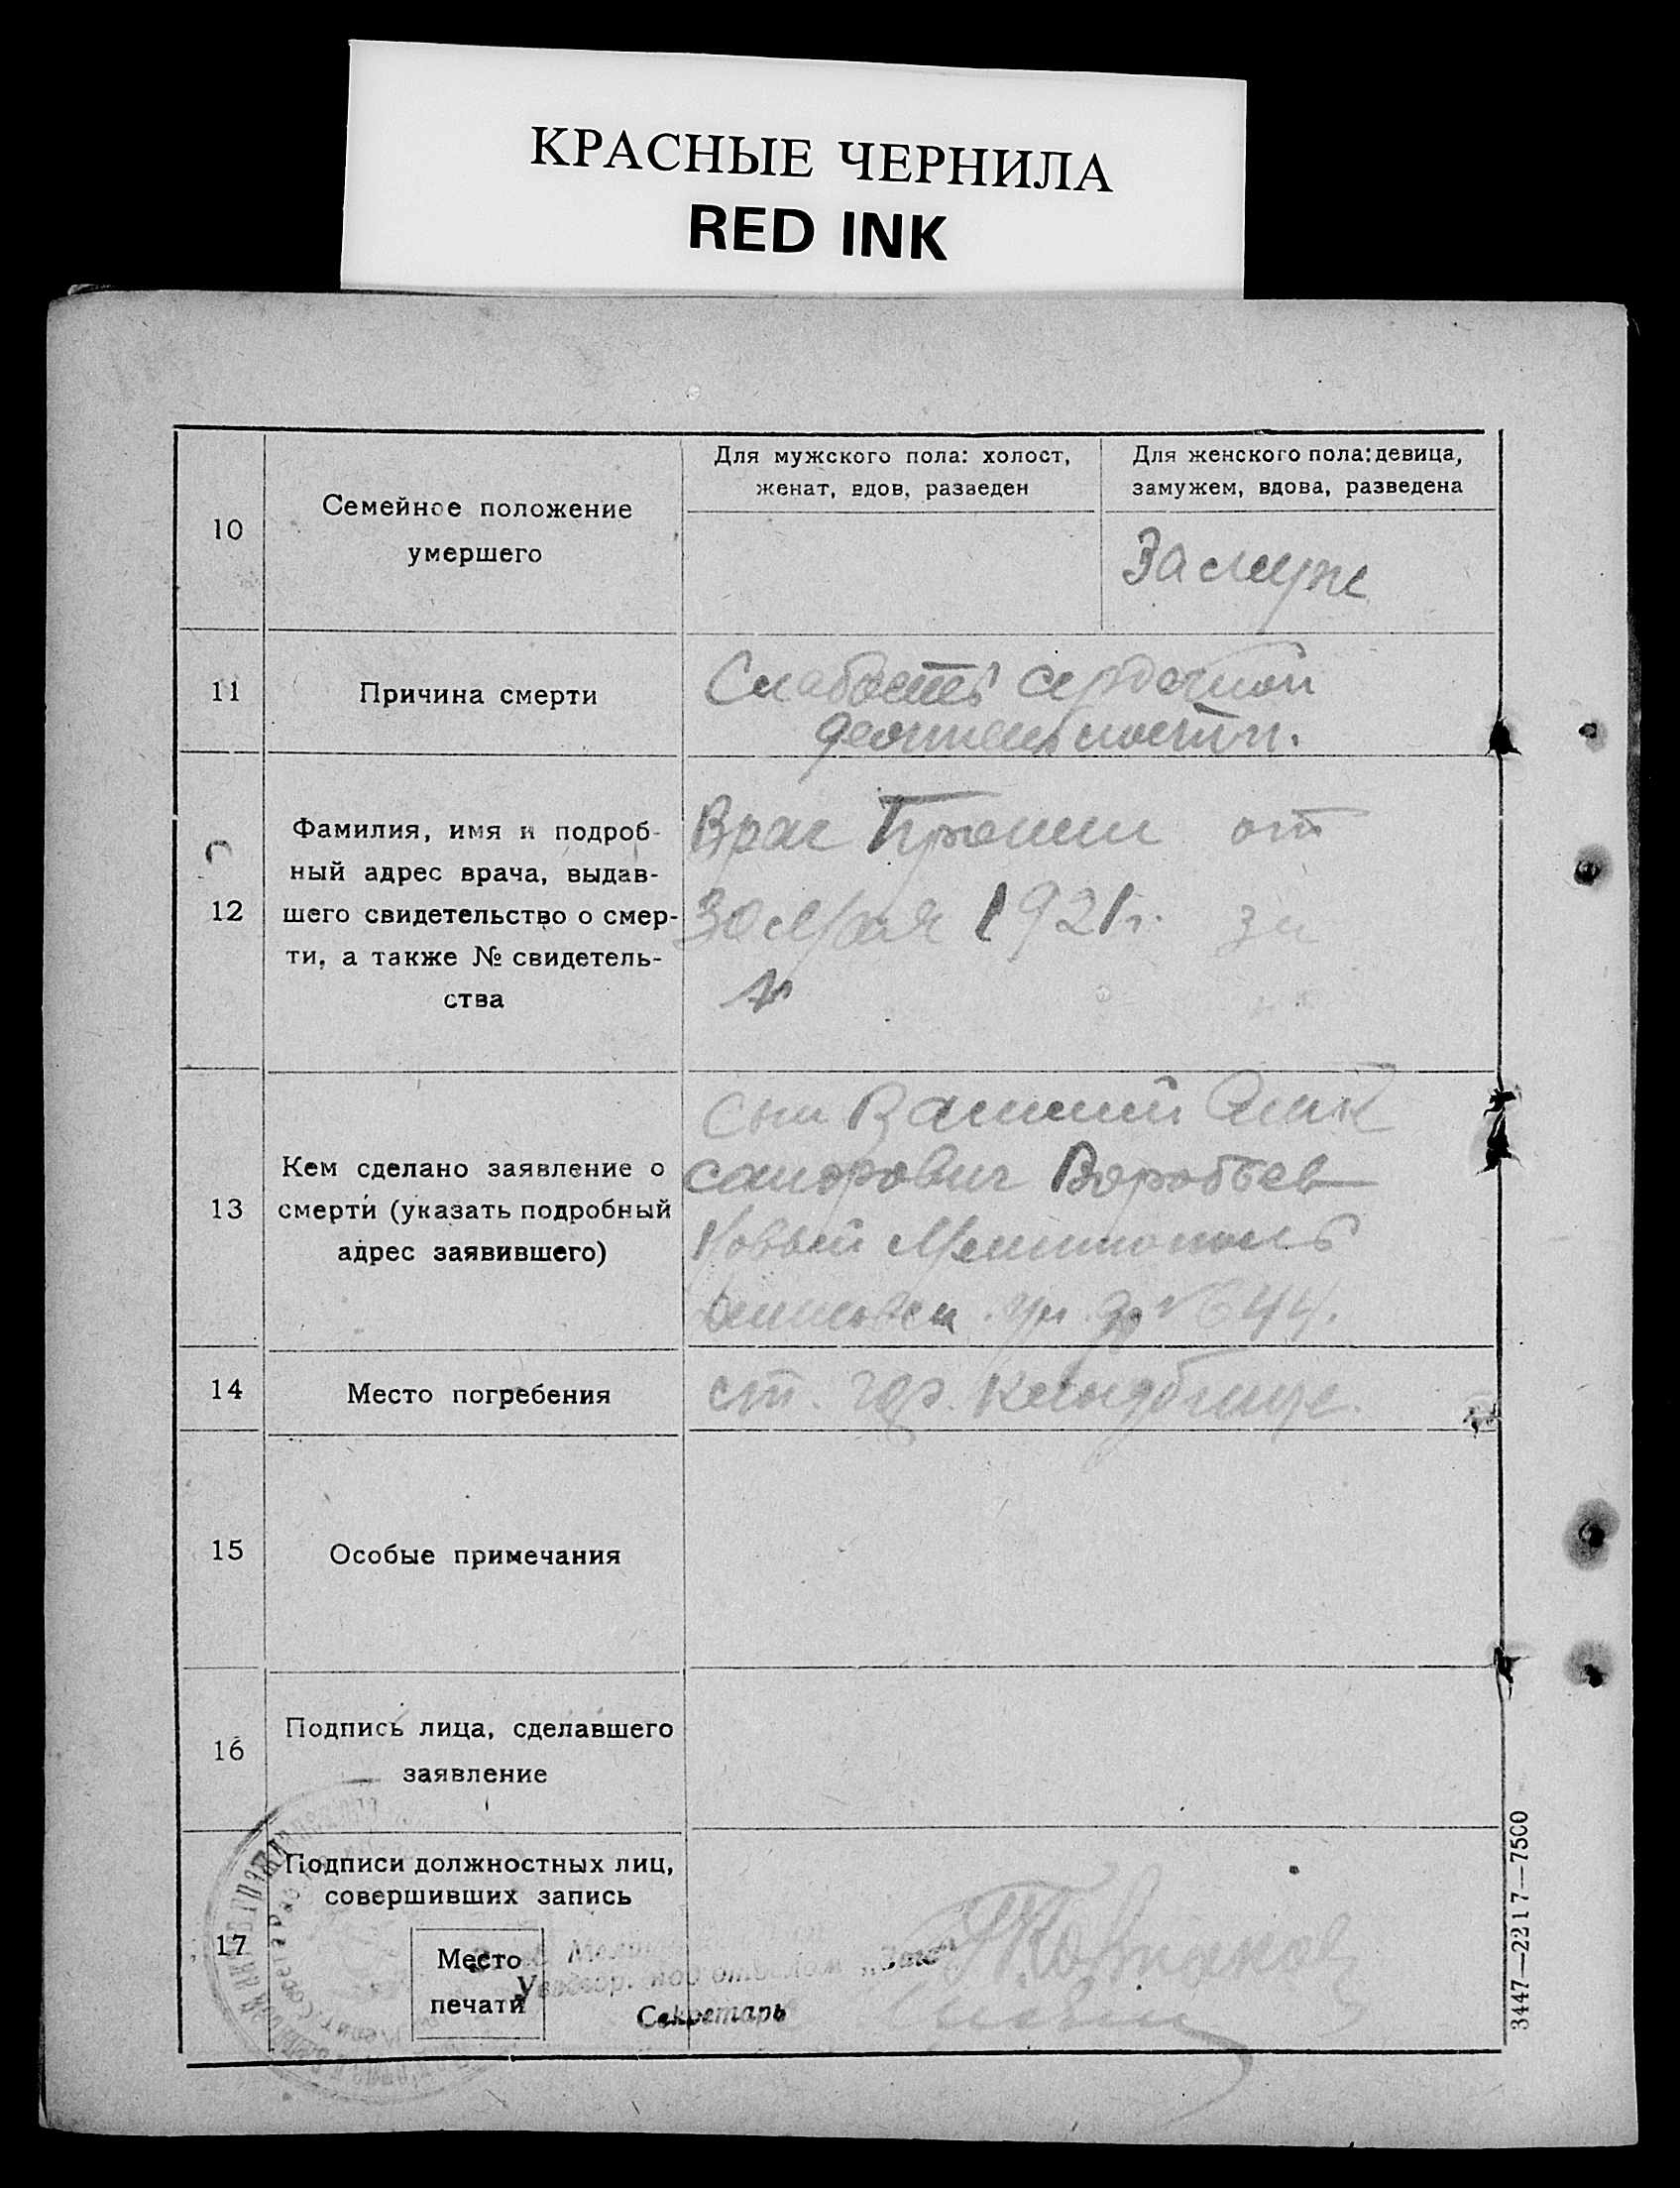 КРАСНЫЕ ЧЕРНИЛА
RED INK
10
Семейное положение
умершего
Для мужского пола: холост,
женат, вдов, разведен
Для женского пола: девица,
замужем, вдова, разведена
Замуже
11
Причина смерти
Слабость сердечной
деятельности.
12
Фамилия, имя и подроб-
ный адрес врача, выдав-
шего свидетельство о смер-
ти, а также № свидетель-
ства
Врач от
30 мая 1921 г. за
№
13
Кем сделано заявление о
смерти (указать подробный
адрес заявившего)
Сын Василий Алек
сандрович Воробьев
Новый Мелитополь
ул. д № 644.
14
Место погребения
ст. гор. кладбище.
15
Особые примечания
16
Подпись лица, сделавшего
заявление
17
Подписи должностных лиц,
совершивших запись
Место
печати
Секретарь
3447—2217—7500